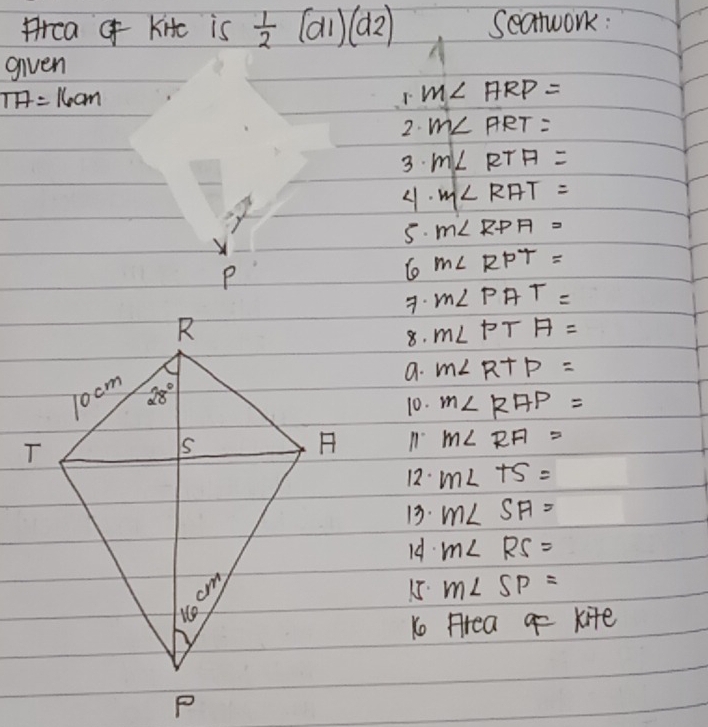 Area of Kite is 1/2 (d1)(d2)
Seatwork:
given
TA = 16cm
P
1. m∠ ARP =
2. m∠ ART =
3. m∠ RTA =
4. m∠ RAT =
5. m∠ RPA =
6 m∠ RPT =
7. m∠ PAT =
8. m∠ PTA =
9. m∠ RTP =
10. m∠ RAP =
11 m∠ RA =
12. m∠ TS =
13. m∠ SA =
14. m∠ RS =
15. m∠ SP =
16 Area of Kite
R
10cm
28°
T
S
A
16 cm
P